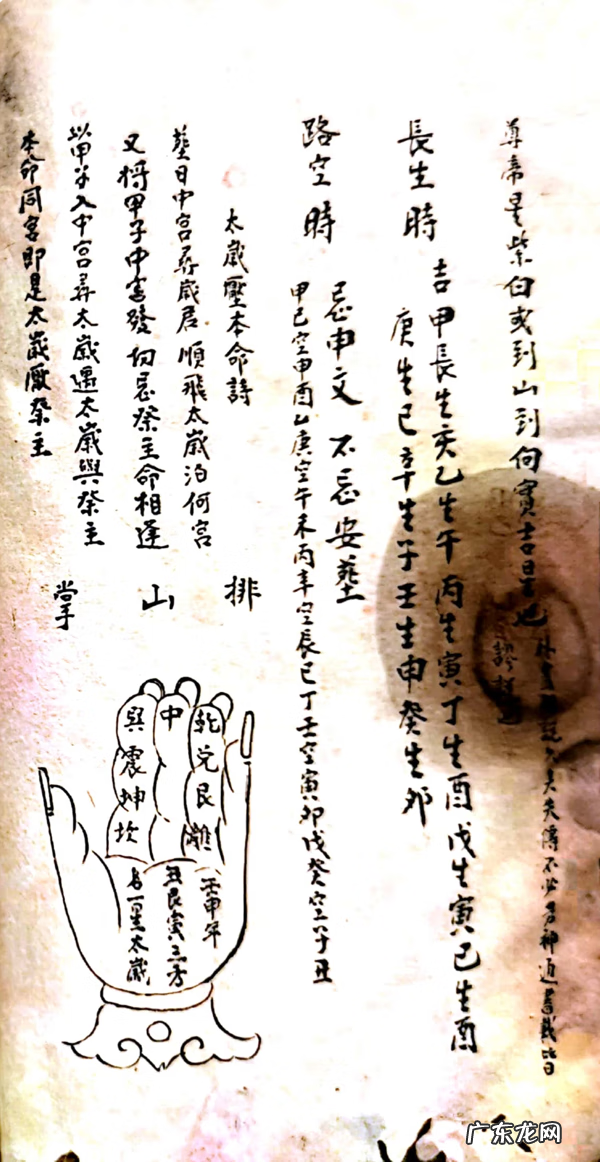 尊帝星紫白或到山到向實吉星也
長生時
吉甲長生亥乙生午丙生寅丁生酉戊生寅己生酉
庚生巳辛生子壬生申癸生卯
路空時
忌申文不忌安葬
甲己空申酉乙庚空午未丙辛空辰巳丁壬空寅卯戊癸空子丑
太歲壓本命詩
葬日中宮尋歲君順飛太歲泊何宮
又將甲子中宮發切忌祭主命相逢
以甲子入中宮尋太歲遇太歲與祭主
本命同宮即是太歲壓祭主
排
山
掌
乾兌艮離
中
巽震坤坎
壬申年
丑艮寅三方
太歲
广东龙网